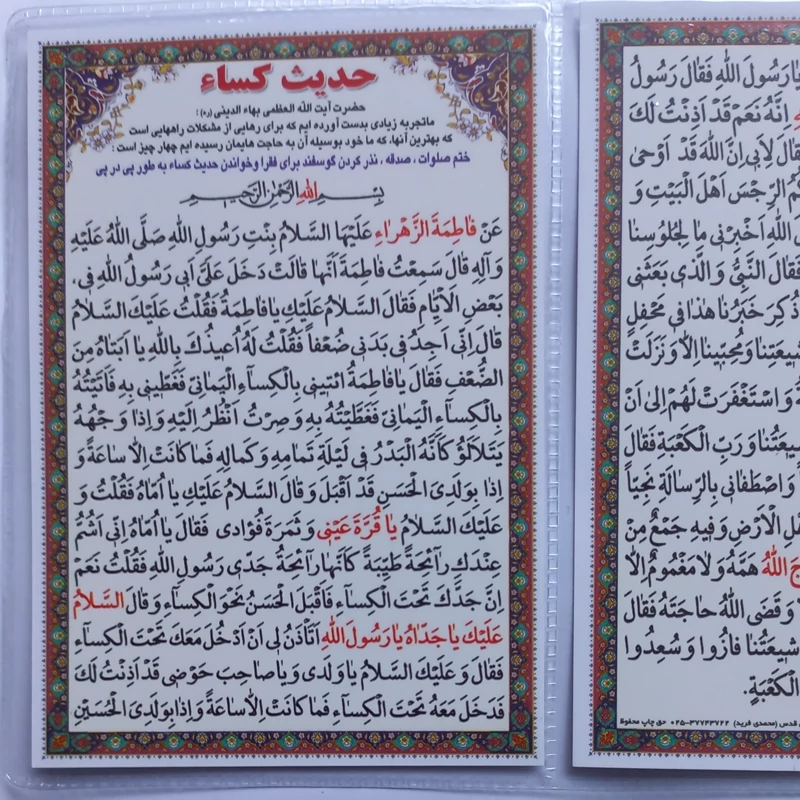 حدیث کساء
حضرت آیت الله العظمی بهاء الدینی (ره) :
ماتجربه زیادی بدست آورده ایم که برای رهایی از مشکلات راههایی است
که بهترین آنها، که ما خود بوسیله آن به حاجت هایمان رسیده ایم چهار چیز است :
ختم صلوات ، صدقه ، نذر کردن گوسفند برای فقرا وخواندن حدیث کساء به طور پی در پی
بِسْمِ اللهِ الرَّحْمٰنِ الرَّحیمِ
عَنْ فاطِمَةَ الزَّهْراءِ عَلَیْهَا السَّلامُ بِنْتِ رَسُولِ اللهِ صَلَّی اللهُ عَلَیْهِ
وَ آلِهِ قالَ سَمِعْتُ فاطِمَةَ اَنَّها قالَتْ دَخَلَ عَلَیَّ اَبی رَسُولُ اللهِ فی
بَعْضِ الْاَیّامِ فَقالَ السَّلامُ عَلَیْكِ یا فاطِمَةُ فَقُلْتُ عَلَیْكَ السَّلامُ
قالَ اِنّی اَجِدُ فی بَدَنی ضُعْفاً فَقُلْتُ لَهُ اُعیذُكَ بِاللهِ یا اَبَتاهُ مِنَ
الضُّعْفِ فَقالَ یا فاطِمَةُ ائْتینی بِالْکِساءِ الْیَمانی فَغَطّینی بِهِ فَاَتَیْتُهُ
بِالْکِساءِ الْیَمانی فَغَطَّیْتُهُ بِهِ وَصِرْتُ اَنْظُرُ اِلَیْهِ وَاِذا وَجْهُهُ
یَتَلَأْلَؤُ کَاَنَّهُ الْبَدْرُ فی لَیْلَةِ تَمامِهِ وَکَمالِهِ فَما کانَتْ اِلّا ساعَةً وَ
اِذا بِوَلَدِیَ الْحَسَنِ قَدْ اَقْبَلَ وَقالَ السَّلامُ عَلَیْكِ یا اُمّاهُ فَقُلْتُ وَ
عَلَیْكَ السَّلامُ یا قُرَّةَ عَیْنی وَ ثَمَرَةَ فُؤادی فَقالَ یا اُمّاهُ اِنّی اَشَمُّ
عِنْدَكِ رائِحَةً طَیِّبَةً کَاَنَّها رائِحَةُ جَدّی رَسُولِ اللهِ فَقُلْتُ نَعَمْ
اِنَّ جَدَّكَ تَحْتَ الْکِساءِ فَاَقْبَلَ الْحَسَنُ نَحْوَ الْکِساءِ وَقالَ السَّلامُ
عَلَیْكَ یا جَدّاهُ یا رَسُولَ اللهِ اَتَأْذَنُ لی اَنْ اَدْخُلَ مَعَكَ تَحْتَ الْکِساءِ
فَقالَ وَعَلَیْكَ السَّلامُ یا وَلَدی وَیا صاحِبَ حَوْضی قَدْ اَذِنْتُ لَكَ
فَدَخَلَ مَعَهُ تَحْتَ الْکِساءِ فَما کانَتْ اِلّا ساعَةً وَاِذا بِوَلَدِیَ الْحُسَیْنِ
یا رَسُولَ اللهِ فَقالَ رَسُولُ
اِنَّهُ نَعَمْ قَدْ اَذِنْتُ لَكَ
قالَ لِاَبی اِنَّ اللهَ قَدْ اَوْحی
الرِّجْسَ اَهْلَ الْبَیْتِ وَ
اللهِ اَخْبِرْنی ما لِجُلُوسِنا
فَقالَ النَّبِیُّ وَالَّذی بَعَثَنی
ذُکِرَ خَبَرُنا هٰذا فی مَحْفِلٍ
شیعَتِنا وَمُحِبّینا اِلّا وَنَزَلَتْ
وَاسْتَغْفَرَتْ لَهُمْ اِلی اَنْ
شیعَتُنا وَرَبِّ الْکَعْبَةِ فَقالَ
وَاصْطَفانی بِالرِّسالَةِ نَجِیّاً
الْاَرْضِ وَفیهِ جَمْعٌ مِنْ
اللهُ هَمَّهُ وَلا مَغْمُومٌ اِلّا
وَ قَضَی اللهُ حاجَتَهُ فَقالَ
شیعَتُنا فازُوا وَ سُعِدُوا
الْکَعْبَةِ.
قدس (محمدی فرید) ۳۷۷۴۳۷۲۲-۰۲۵ حق چاپ محفوظ